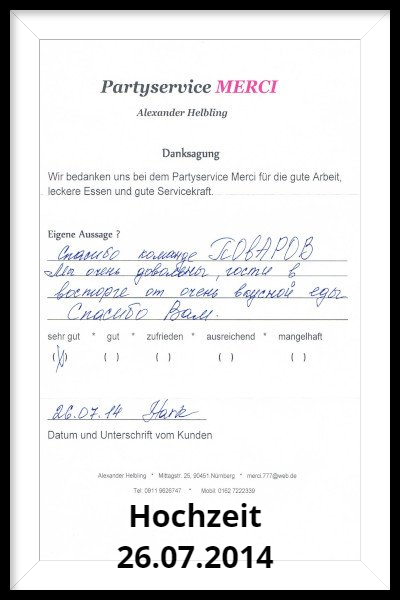 Partyservice MERCI
Alexander Helbling
Danksagung
Wir bedanken uns bei dem Partyservice Merci für die gute Arbeit,
leckere Essen und gute Servicekraft.
Eigene Aussage ?
Спасибо команде ПОВАРОВ
Мы очень довольны, гости в
восторге от очень вкусной еды
Спасибо Вам.
sehr gut * gut * zufrieden * ausreichend * mangelhaft
(X) ( ) ( ) ( ) ( )
26.07.14
Datum und Unterschrift vom Kunden
Alexander Helbling * Mittagstr. 25, 90451 Nürnberg * merci.777@web.de
Tel: 0911 9628747 * Mobil: 0162 7222839
Hochzeit
26.07.2014